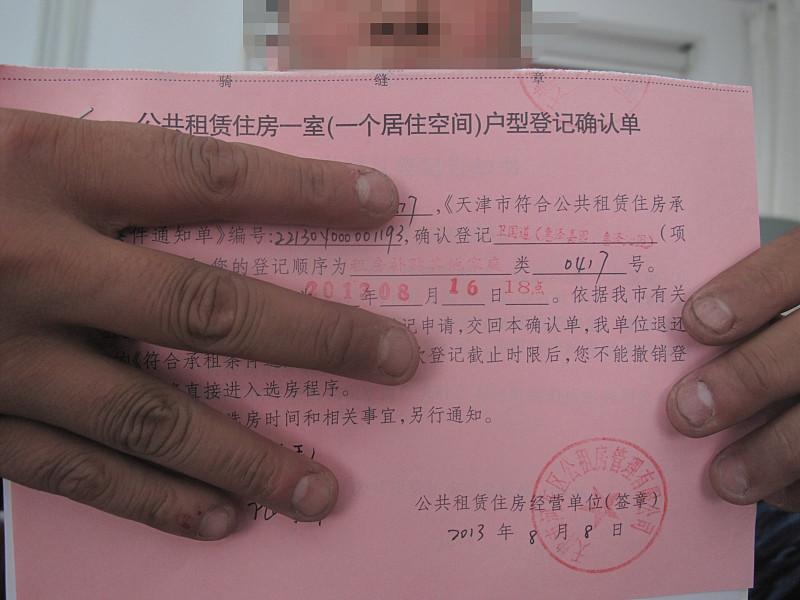 骑 缝 章
公共租赁住房一室(一个居住空间)户型登记确认单
,《天津市符合公共租赁住房承
件通知单》编号:221304000001193,确认登记卫国道( (项
您的登记顺序为租房补贴实施家庭类 0417 号。
2013年08月16日18点。依据我市有关
记申请,交回本确认单,我单位退还
《符合承租条件 登记截止时限后,您不能撤销登
直接进入选房程序。
选房时间和相关事宜,另行通知。
公共租赁住房经营单位(签章)
2013 年 8 月 8 日
公租房管理有限公司